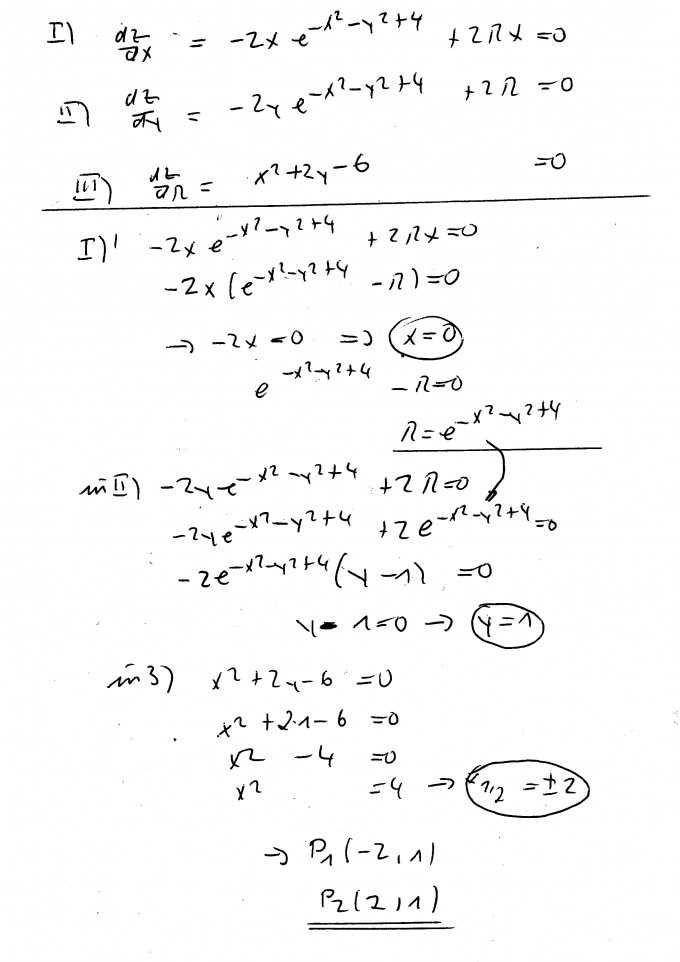 I) dL/∂x = -2x e^(-x²-y²+4) + 2λx = 0
II) dL/dy = -2y e^(-x²-y²+4) + 2λ = 0
III) dL/∂λ = x² + 2y - 6 = 0
I)' -2x e^(-x²-y²+4) + 2λx = 0
-2x (e^(-x²-y²+4) - λ) = 0
→ -2x = 0 => x = 0
e^(-x²-y²+4) - λ = 0
λ = e^(-x²-y²+4)
in II) -2y e^(-x²-y²+4) + 2λ = 0
-2y e^(-x²-y²+4) + 2e^(-x²-y²+4) = 0
-2e^(-x²-y²+4) (y - 1) = 0
y - 1 = 0 → y = 1
in 3) x² + 2y - 6 = 0
x² + 2·1 - 6 = 0
x² - 4 = 0
x² = 4 → x₁,₂ = ±2
→ P₁(-2, 1)
P₂(2, 1)